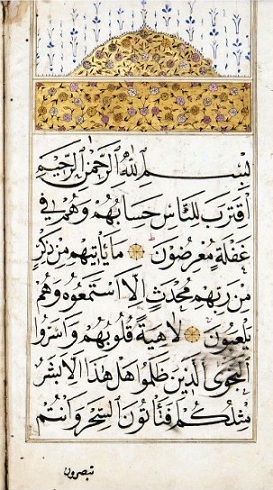 بِسْمِ اللهِ الرَّحْمٰنِ الرَّحِيمِ
اِقْتَرَبَ لِلنَّاسِ حِسَابُهُمْ وَهُمْ فِي
غَفْلَةٍ مُعْرِضُونَ مَا يَأْتِيهِمْ مِنْ ذِكْرٍ
مِنْ رَبِّهِمْ مُحْدَثٍ اِلَّا اسْتَمَعُوهُ وَهُمْ
يَلْعَبُونَ لَاهِيَةً قُلُوبُهُمْ وَاَسَرُّوا
النَّجْوَى الَّذِينَ ظَلَمُوا هَلْ هٰذَا اِلَّا بَشَرٌ
مِثْلُكُمْ فَتَأْتُونَ السِّحْرَ وَاَنْتُمْ
تبصرون